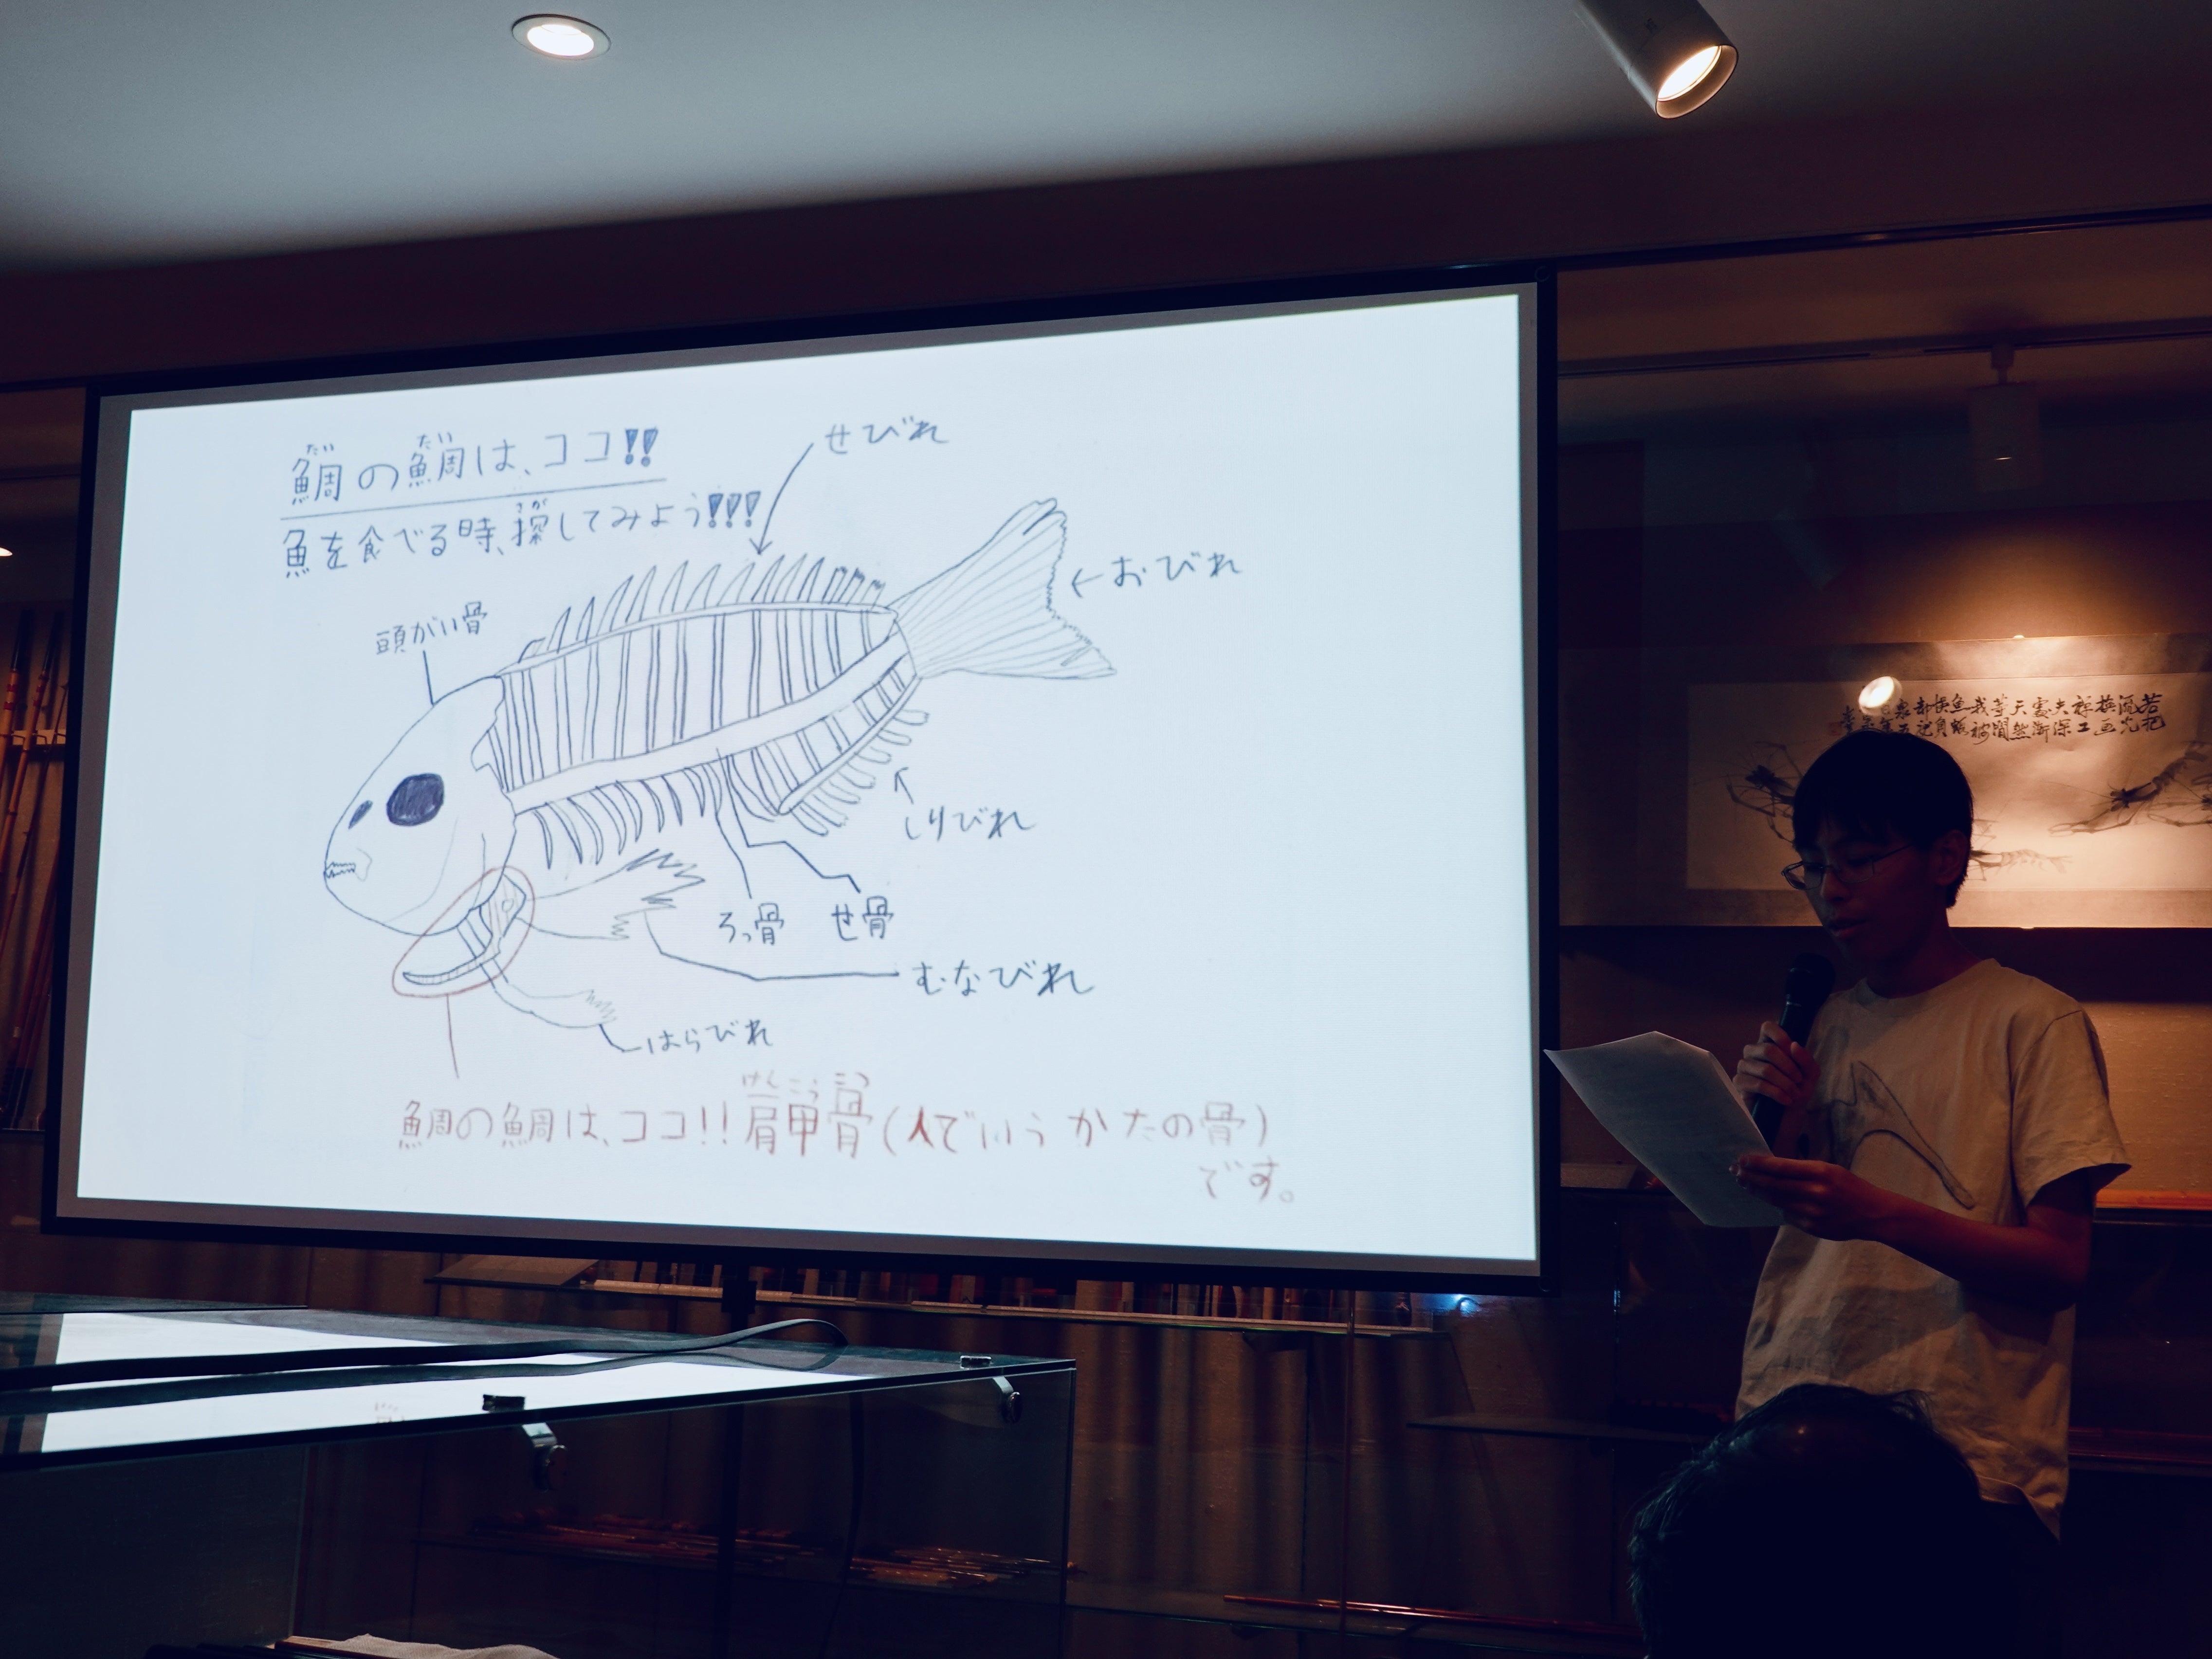 鯛の鯛は、ココ!!
魚を食べる時、探してみよう!!!
せびれ
おびれ
頭がい骨
しりびれ
ろっ骨
せ骨
むなびれ
はらびれ
鯛の鯛は、ココ!!肩甲骨(人でいうかたの骨)
です。